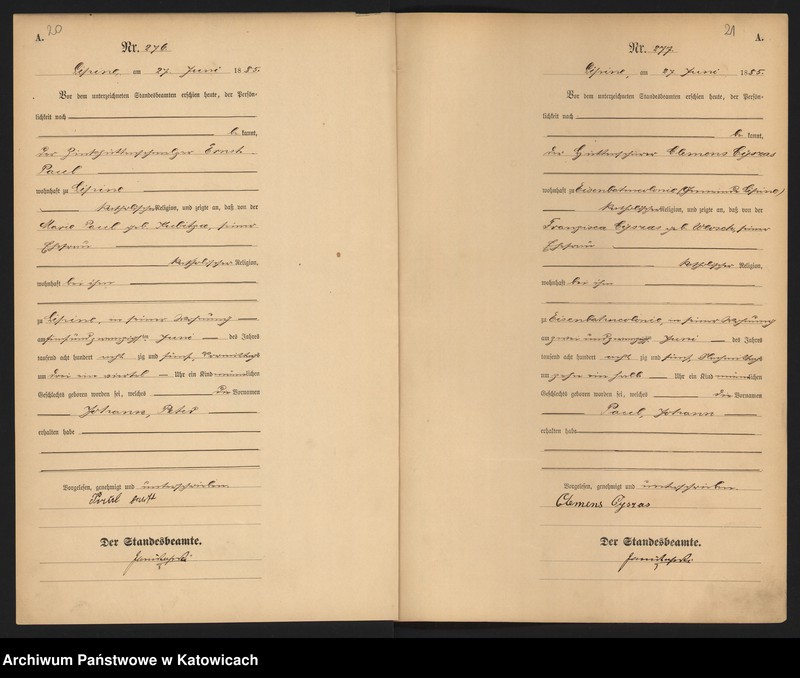 20
A.
Nr. 276.
Lipine, am 27. Juni 1885.
Vor dem unterzeichneten Standesbeamten erschien heute, der Persön-
lichkeit nach
be kannt,
der Zinkhüttenschmelzer
wohnhaft zu Lipine
katholischer Religion, und zeigte an, daß von der
Marie geb. seiner
Ehefrau
katholischer Religion,
wohnhaft bei ihm
zu Lipine, in seiner Wohnung
am fünfundzwanzigsten Juni des Jahres
tausend acht hundert acht zig und fünf, Vormittags
um drei ein viertel Uhr ein Kind männlichen
Geschlechts geboren worden sei, welches die Vornamen
Johann, Peter
erhalten habe
Vorgelesen, genehmigt und unterschrieben
Der Standesbeamte.
21
A.
Nr. 277.
Lipine, am 27. Juni 1885.
Vor dem unterzeichneten Standesbeamten erschien heute, der Persön-
lichkeit nach
be kannt,
der Clemens Cyszas
wohnhaft zu Eisenbahncolonie (Gemeinde Lipine)
katholischer Religion, und zeigte an, daß von der
Franzisca Cyszas geb. seiner
Ehefrau
katholischer Religion,
wohnhaft bei ihm
zu Eisenbahncolonie, in seiner Wohnung
am zwei und zwanzigsten Juni des Jahres
tausend acht hundert acht zig und fünf, Nachmittags
um zehn ein halb Uhr ein Kind männlichen
Geschlechts geboren worden sei, welches die Vornamen
Paul, Johann
erhalten habe
Vorgelesen, genehmigt und unterschrieben
Clemens Cyszas
Der Standesbeamte.
Archiwum Państwowe w Katowicach